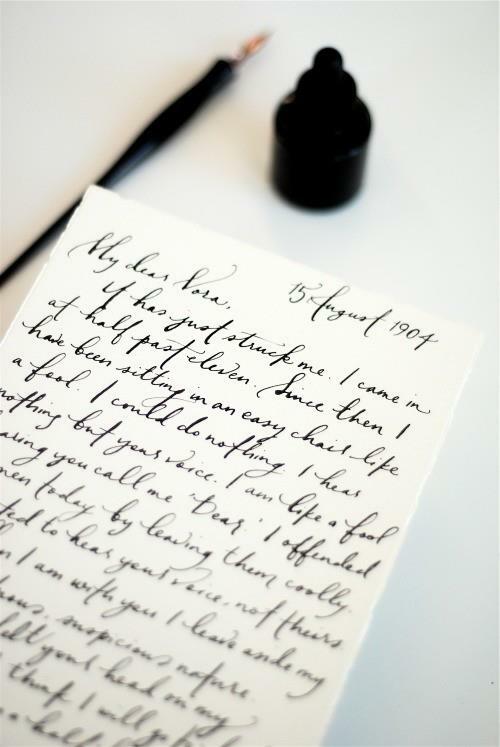 15 August 1904
My dear Nora,
it has just struck me. I came in
at half past eleven. Since then I
have been sitting in an easy chair like
a fool. I could do nothing. I hear
nothing but your voice. I am like a fool
aring you call me 'Dear.' I offended
men today by leaving them coolly.
ted to hear your voice, not theirs.
n I am with you I leave aside my
suspicious nature.
felt your head on my
think I will go
a half